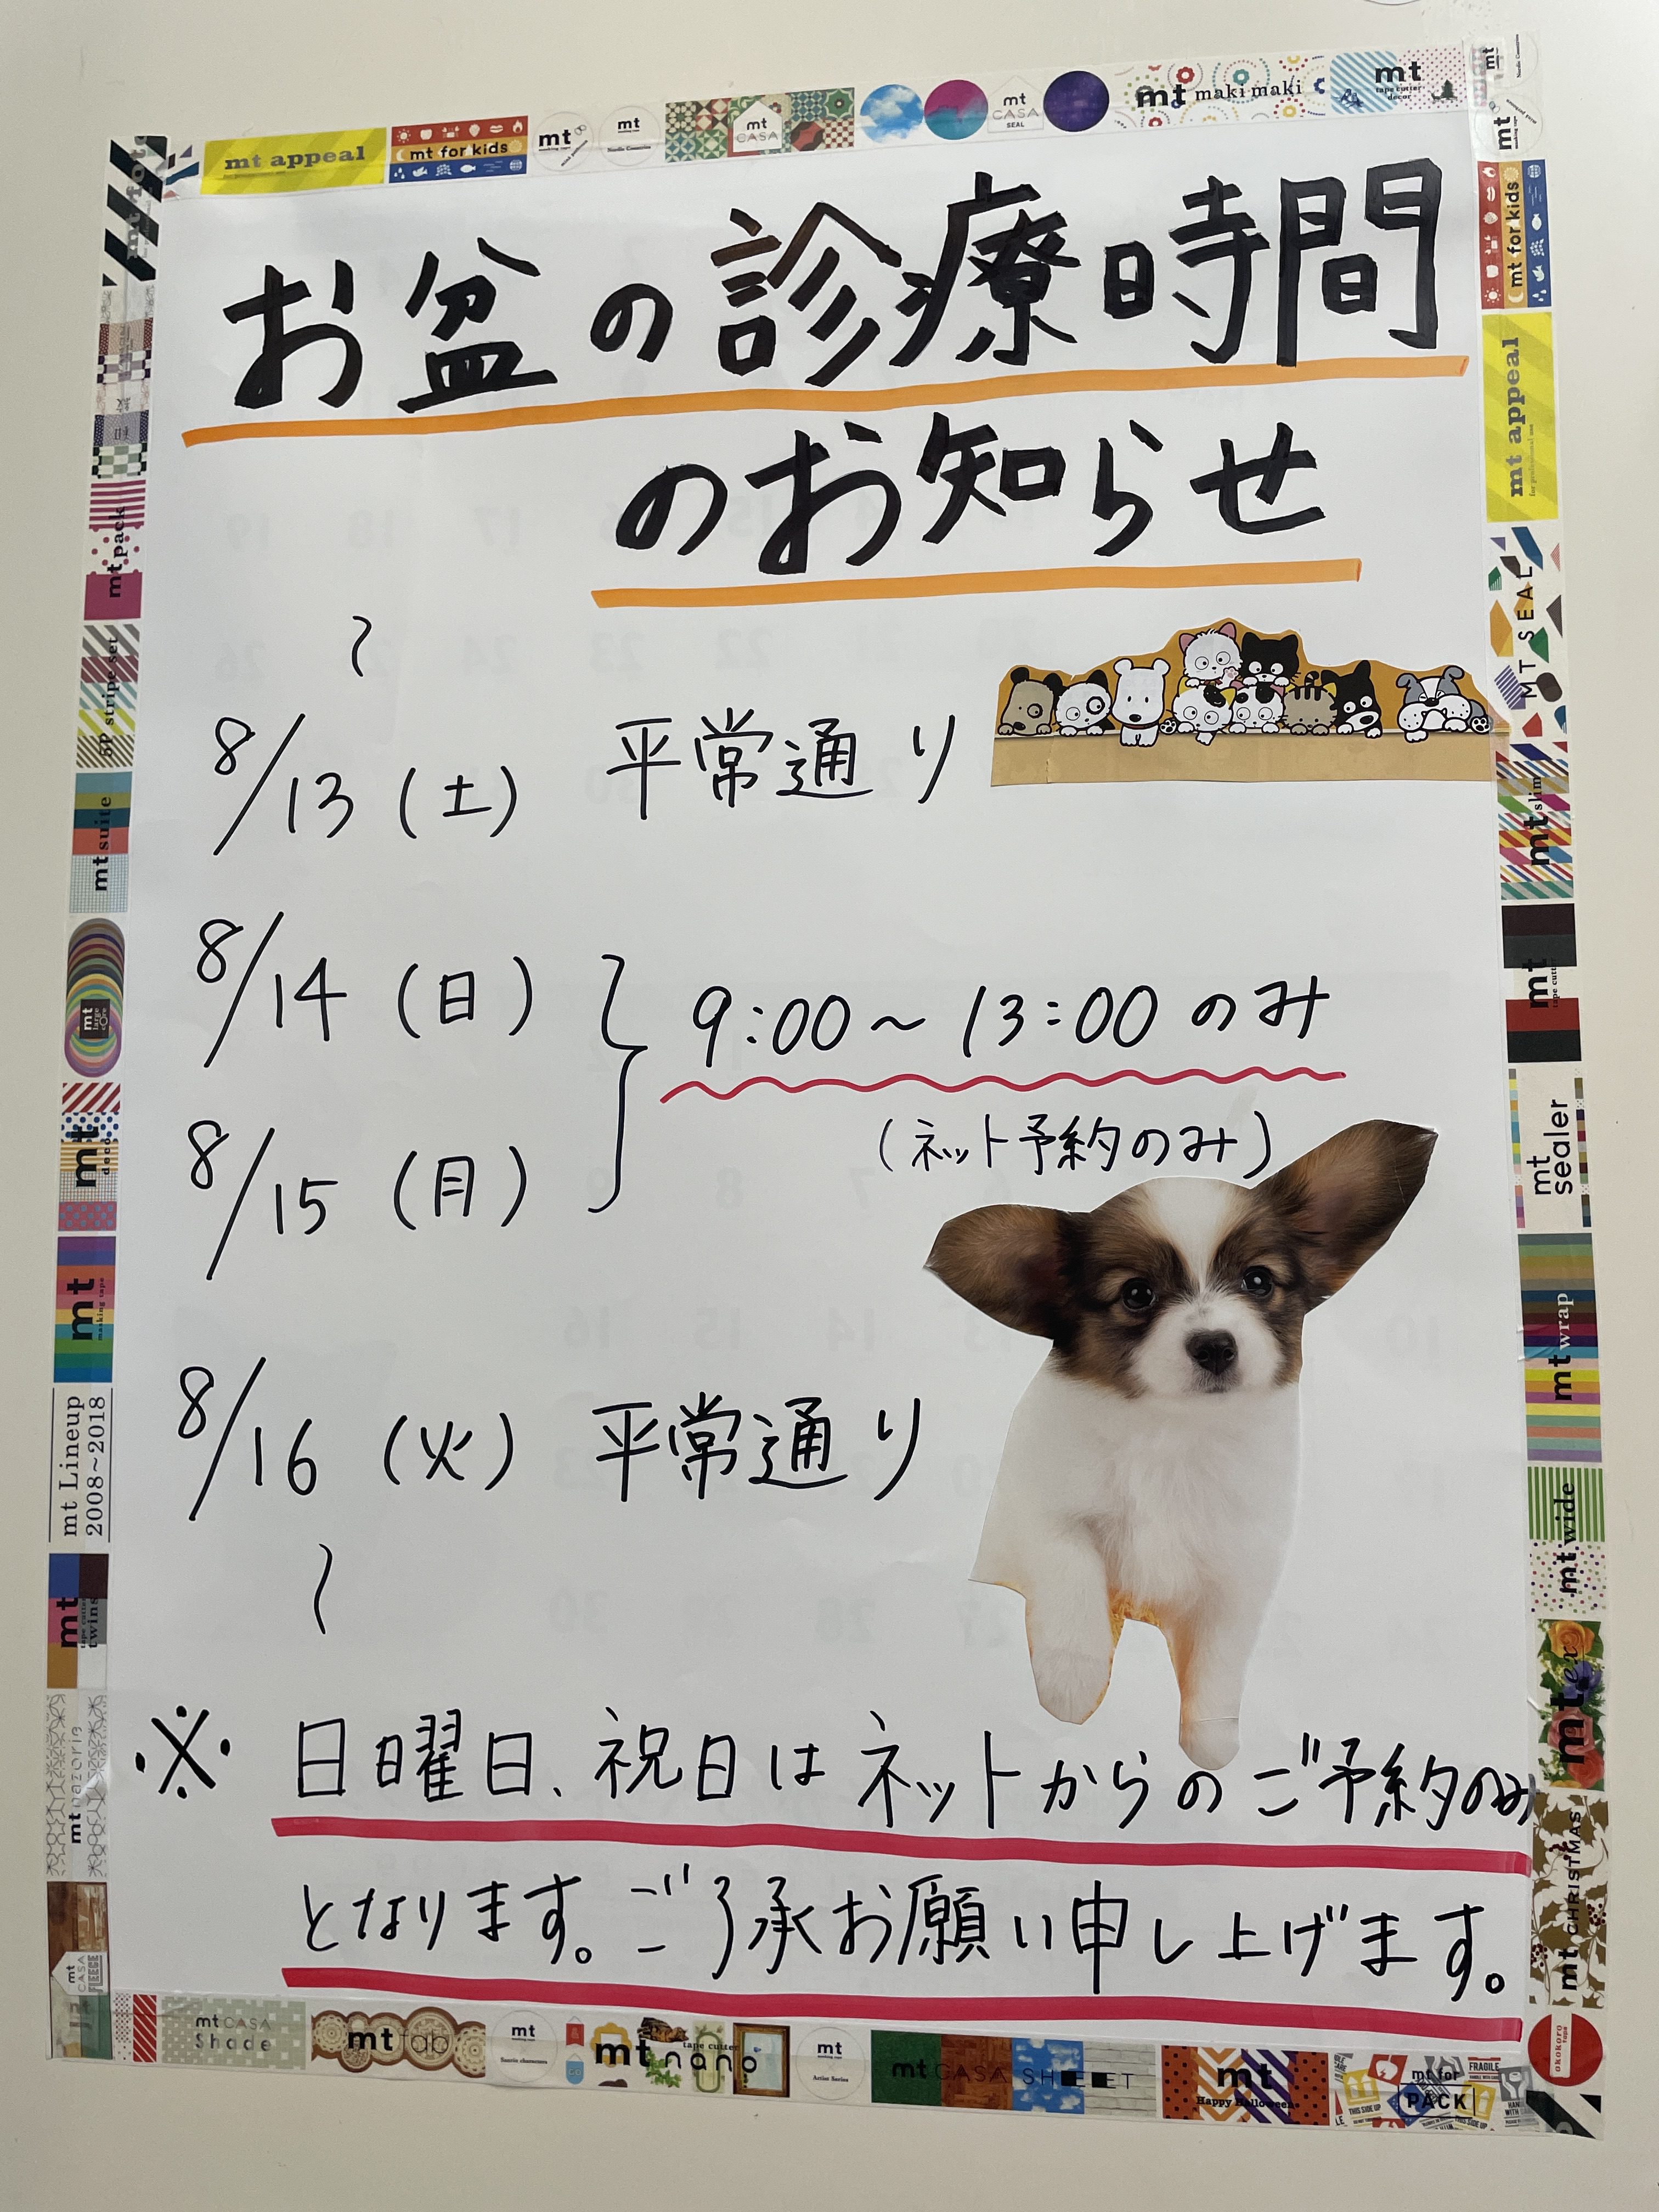 お盆の診療時間
のお知らせ
〜
8/13(土) 平常通り
8/14(日)
9:00〜13:00のみ
(ネット予約のみ)
8/15(月)
8/16(火) 平常通り
〜
※日曜日、祝日はネットからのご予約のみ
となります。ご了承お願い申し上げます。
mt appeal
mt for kids
mt
mt
mt CASA
mt CASA SEAL
mt maki maki
mt tape cutter decor
mt for kids
mt appeal
MT SEAL
mt slim
mt
mt sealer
mt wrap
mt wide
mt ex
mt CHRISTMAS
mt pack
mt suite
mt
mt deco
mt masking tape
mt Lineup
2008~2018
mt twins
mt CASA FLEECE
mt CASA Shade
mt fab
mt
mt nano
mt
mt CASA SHEET
mt Happy Halloween
mt for PACK
FRAGILE